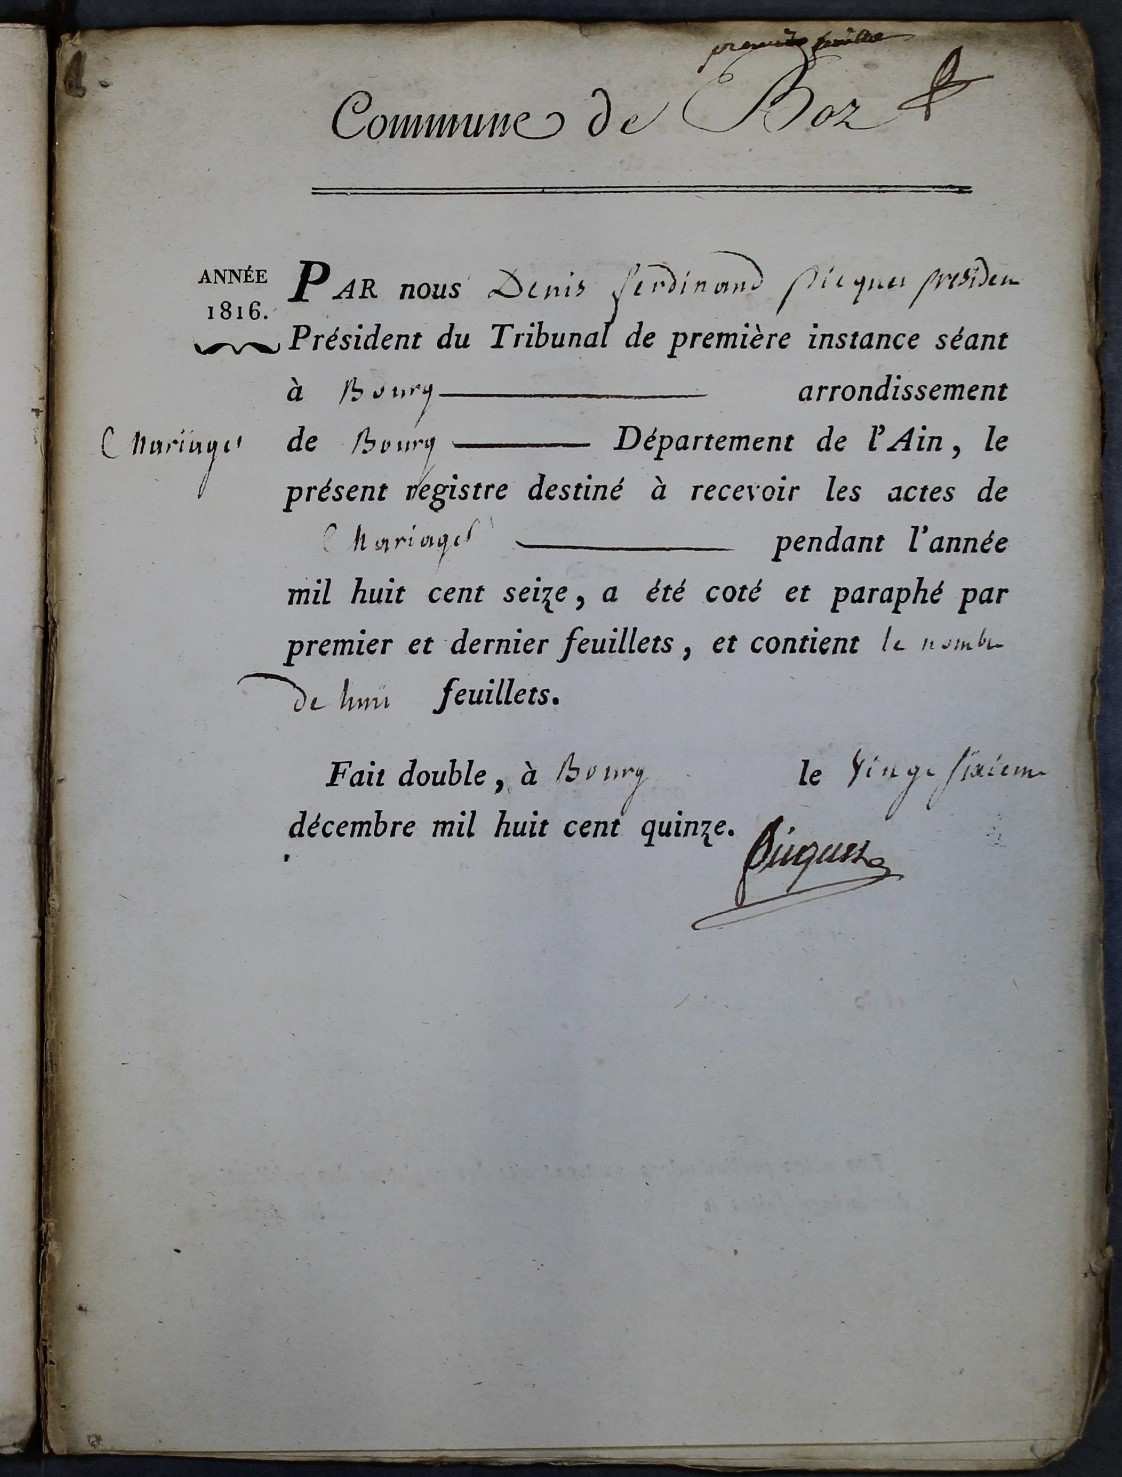 première feuille
Commune de Boz
ANNÉE
1816.
PAR nous Denis ferdinand picquet présiden
Président du Tribunal de première instance séant
à Bourg arrondissement
Mariages
de Bourg Département de l'Ain, le
présent registre destiné à recevoir les actes de
Mariages pendant l'année
mil huit cent seize, a été coté et paraphé par
premier et dernier feuillets, et contient le nombre
de huit feuillets.
Fait double, à Bourg le vingt
décembre mil huit cent quinze.
Picquet